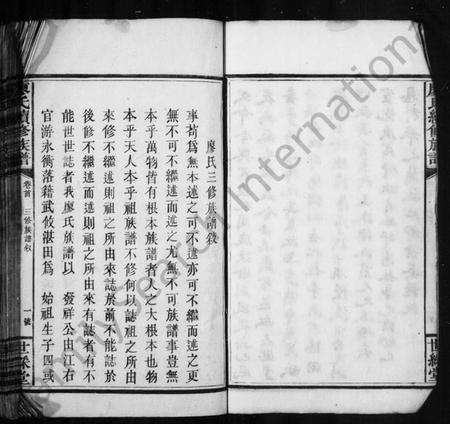 廖氏三修族譜敘
事苟爲無本述之可不述亦可不繼而述之更
無不可不繼述而述之尤無不可族譜事豈無
本乎萬物皆有根本族譜者人之大根本也物
本乎天人本乎祖族譜不修何以誌祖之所由
來修不繼述則祖之所由來誌於前不能誌於
後修不繼述而述則祖之所由來有誌者有不
能世世誌者我廖氏族譜以 發祥公由江右
官游永衡落籍武攸湛田爲 始祖生子四或
廖氏續修族譜
卷首
三修族譜敘
一號
世綵堂
廖氏續修族譜
世綵堂
FamilySearch International